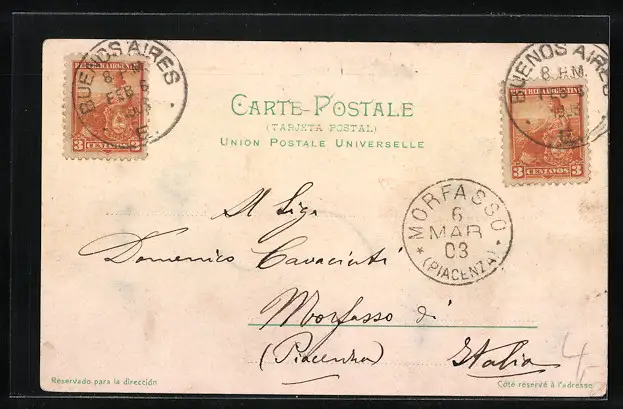 BUENOS AIRES
8 M.
FEB 6
BUENOS AIRES
8 H.M.
FEB 6
REPUBLICA ARGENTINA
3 CENTAVOS 3
REPUBLICA ARGENTINA
3 CENTAVOS 3
CARTE-POSTALE
(TARJETA POSTAL)
UNION POSTALE UNIVERSELLE
MORFASSO
6
MAR
03
(PIACENZA)
Al Sigr
Domenico Cavaciuti
Morfasso di
(Piacenza)
Italia
4
Reservado para la dirección
Côté réservé à l'adresse